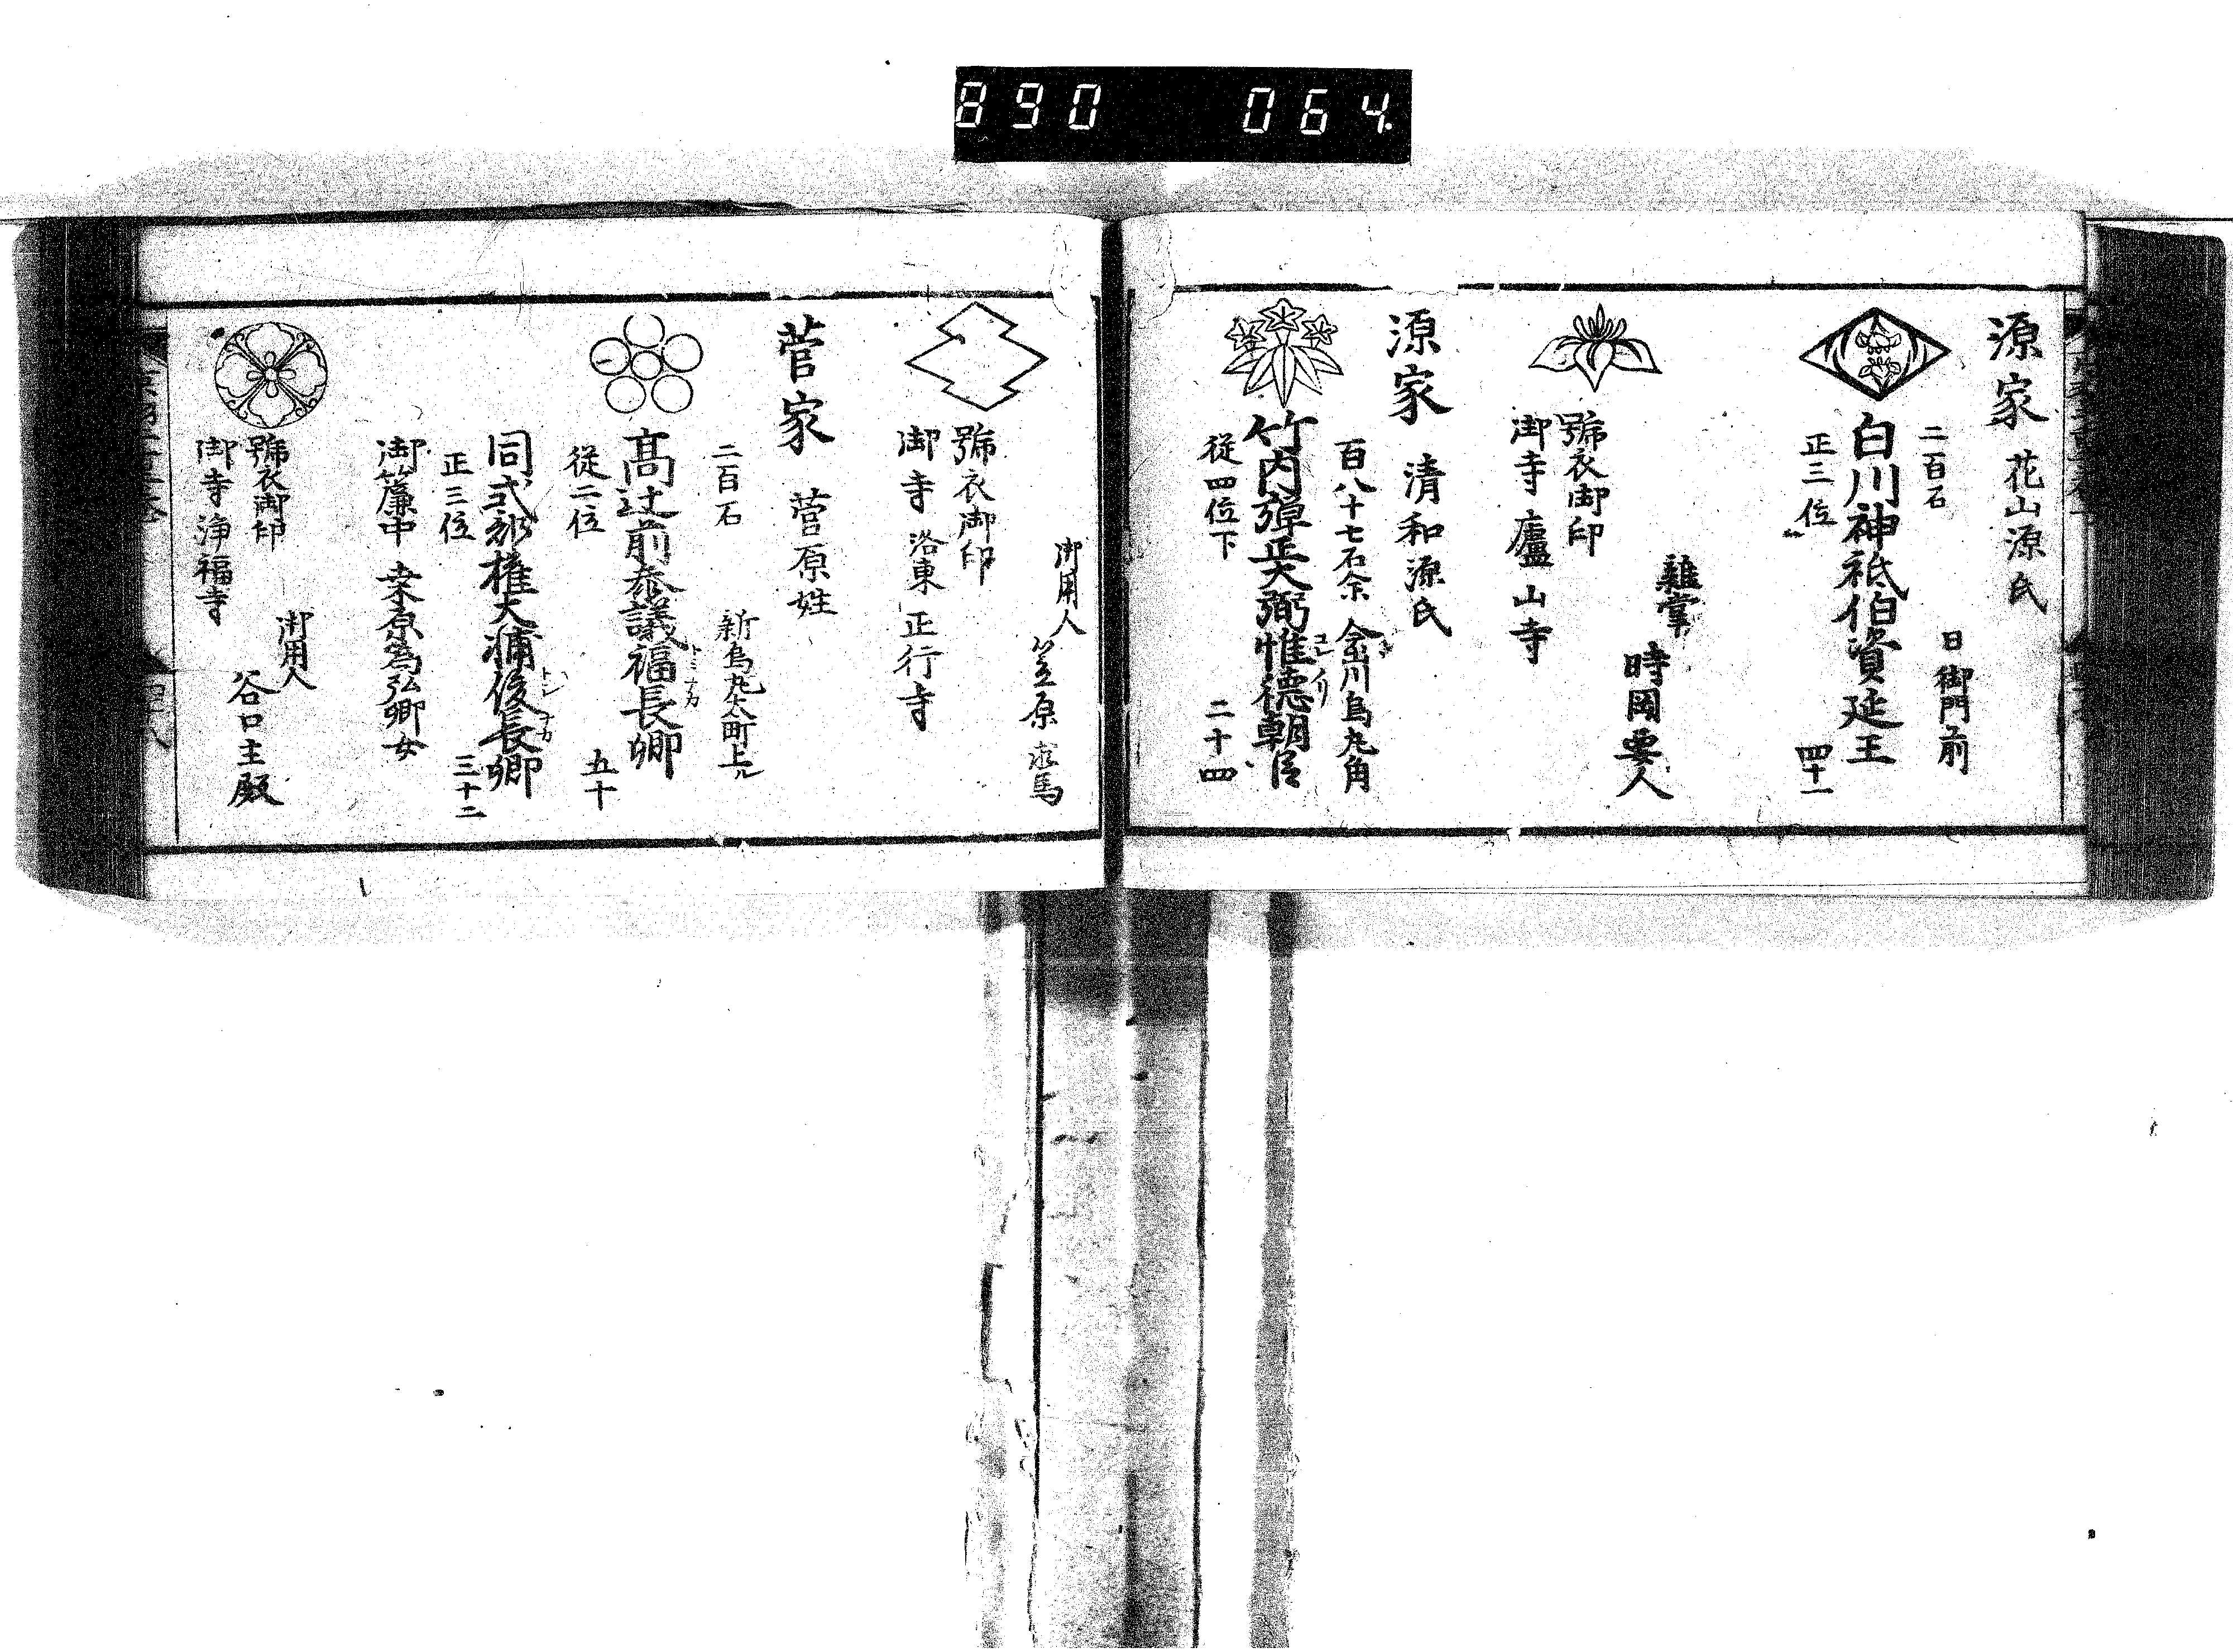 890 064
源家 花山源氏
二百石 日御門前
白川神祇伯資延王
正三位 四十一
雜掌 時岡要人
號衣御印
御寺 廬山寺
源家 清和源氏
百八十七石余 今出川烏丸角
竹内弾正大弼惟徳朝臣
従四位下 二十四
御用人 笠原求馬
號衣御印
御寺 洛東 正行寺
菅家 菅原姓
二百石 新烏丸丸太町上ル
髙辻前参議福長卿
トミナカ
従二位 五十
同式部権大輔俊長卿
正三位 三十二
御簾中 桒原為弘卿女
御用人 谷口主殿
號衣御印
御寺浄福寺